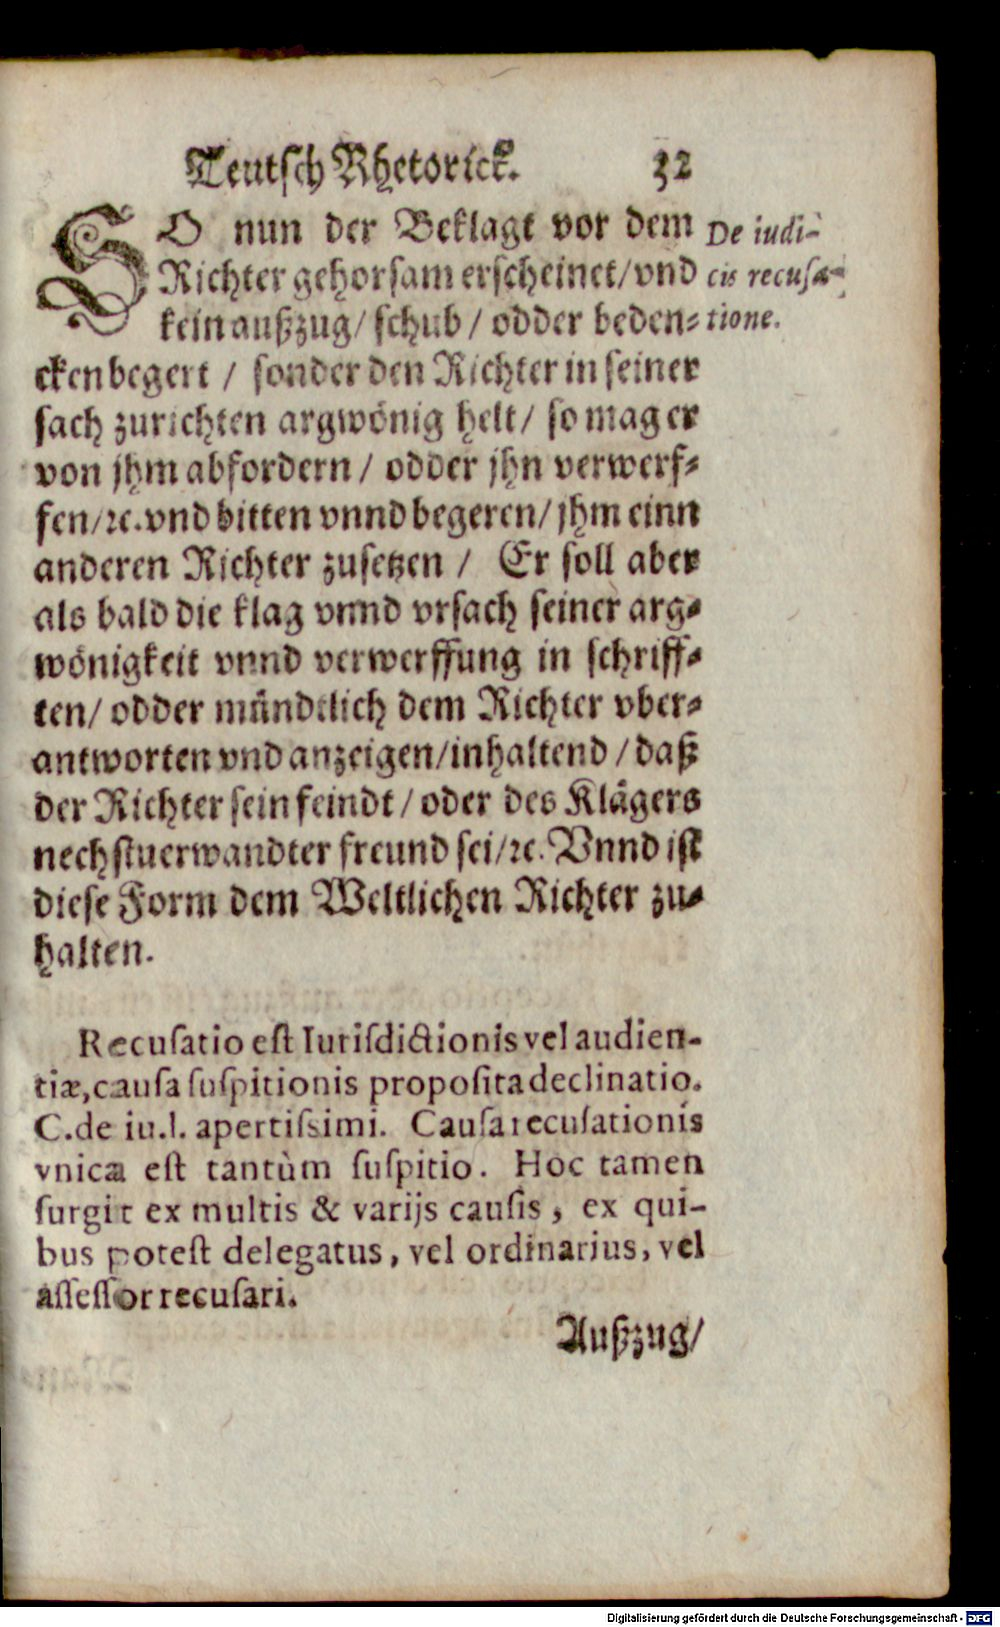 Teutsch Rhetorick. 32
SO nun der Beklagt vor dem
Richter gehorsam erscheinet/ vnd
kein außzug/ schub / odder beden⸗
cken begert / sonder den Richter in seiner
sach zurichten argwönig helt/ so mag er
von jhm abfordern / odder jhn verwerf⸗
fen/ ꝛc. vnd bitten vnnd begeren/ jhm einn
anderen Richter zusetzen / Er soll aber
als bald die klag vnnd vrsach seiner arg⸗
wönigkeit vnnd verwerffung in schriff⸗
ten/ odder mündtlich dem Richter vber⸗
antworten vnd anzeigen/ inhaltend / daß
der Richter sein feindt / oder des Klägers
nechstuerwandter freund sei/ ꝛc. Vnnd ist
diese Form dem Weltlichen Richter zu⸗
halten.
De iudi-
cis recusa-
tione.
Recuſatio eſt Iuriſdictionis vel audien-
tiæ, cauſa ſuſpitionis propoſita declinatio.
C. de iu. l. apertiſsimi. Cauſa recuſationis
vnica eſt tantùm ſuſpitio. Hoc tamen
ſurgit ex multis & varijs cauſis, ex qui-
bus poteſt delegatus, vel ordinarius, vel
aſſeſſor recuſari.
Außzug/
Digitalisierung gefördert durch die Deutsche Forschungsgemeinschaft - DFG